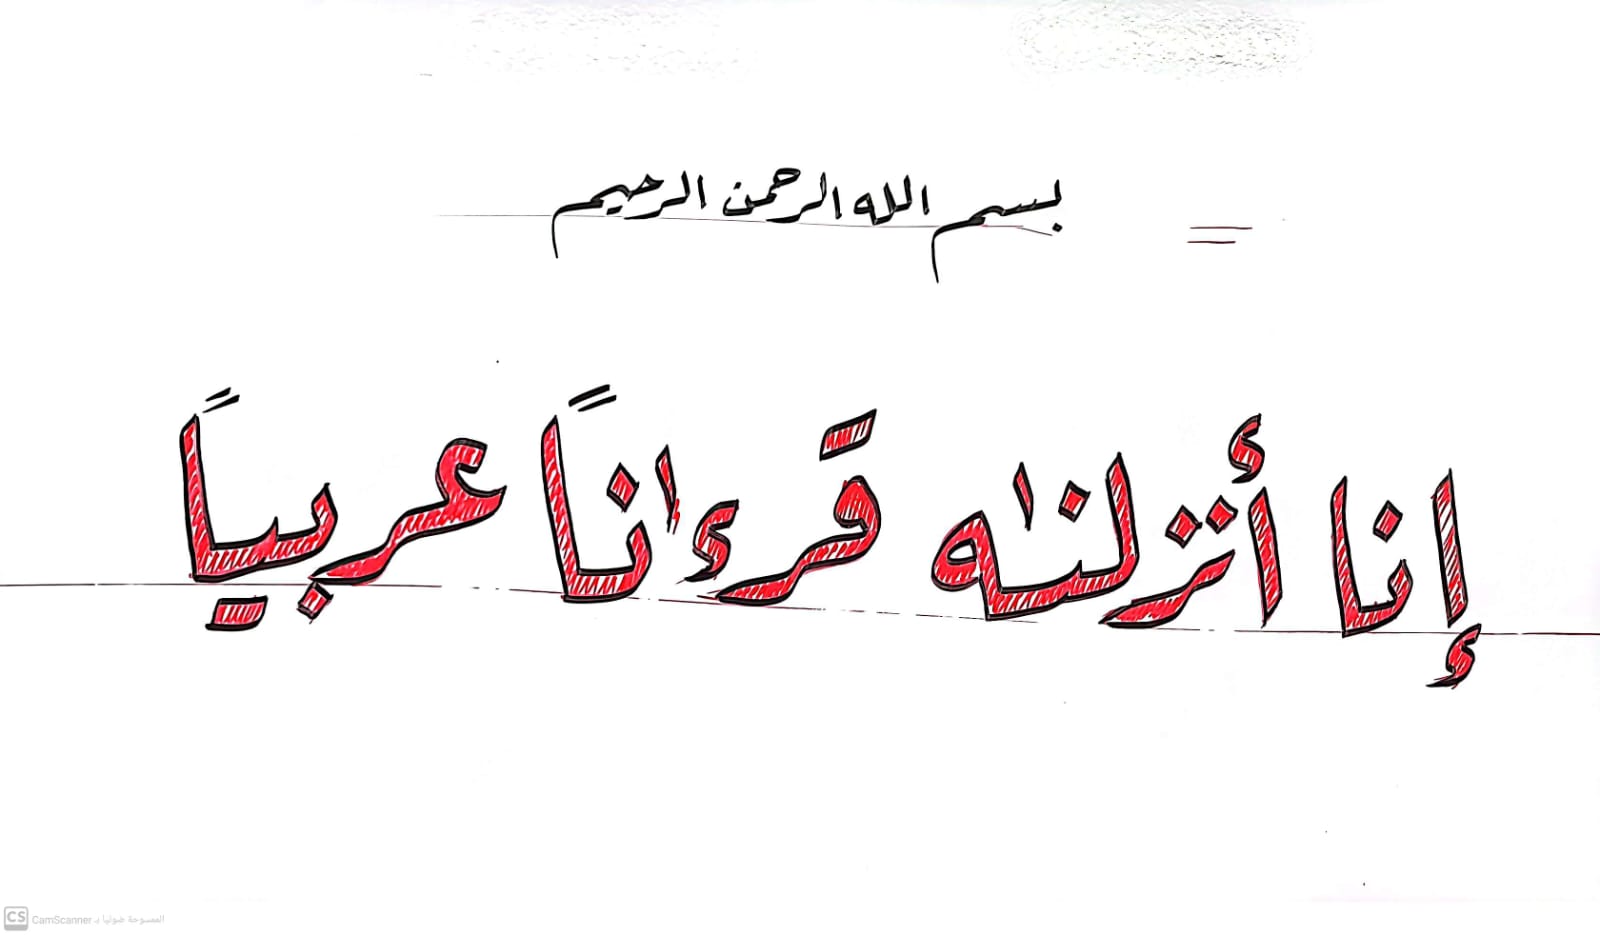 بسم الله الرحمن الرحيم
إنا أنزلنٰه قرءاناً عربياً
CS CamScanner الممسوحة ضوئيا بـ